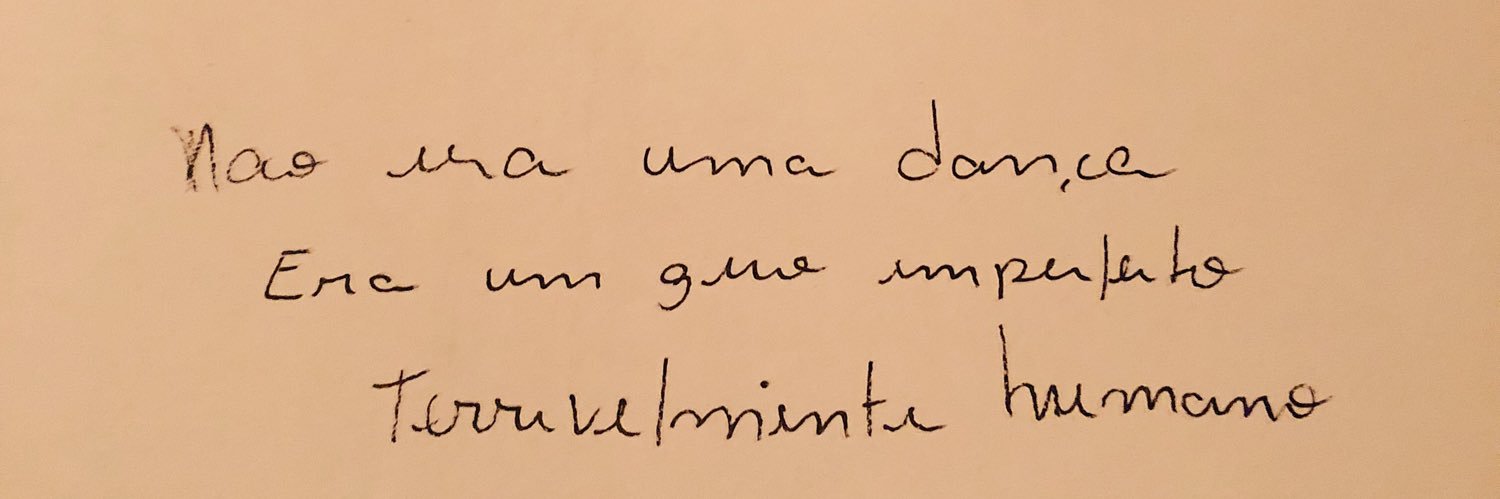 Nao era uma dança
Era um giro imperfeito
Terrivelmente humano